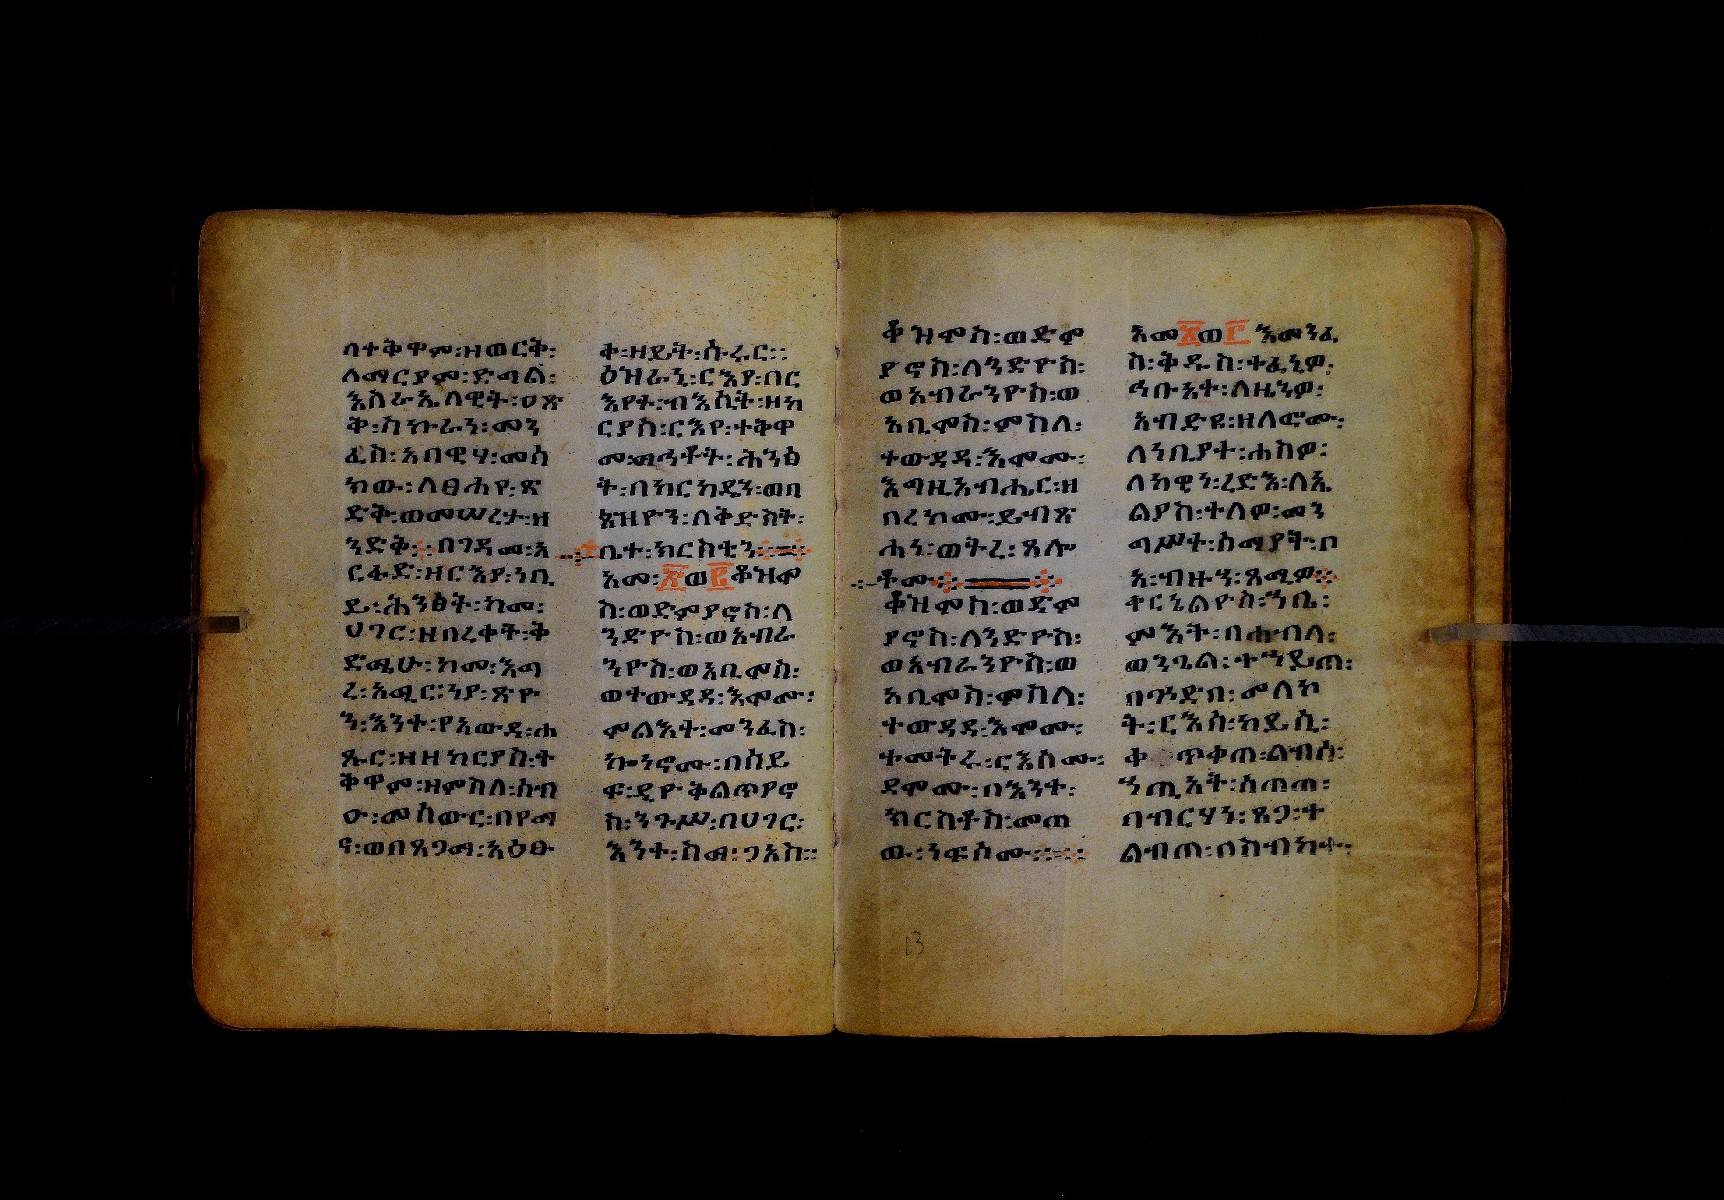 ሰተቅዋም፡ዘወርቅ፡
ለማርያም፡ድማል፡
እስራኤላዊት፡ዐጽ
ቅ፡ስኩራን፡መን
ፈስ፡አበዊሃ፡መሰ
ክው፡ለፀሐየ፡ጽ
ድቅ፡ወመሠረታ፡ዘ
ንድቅ፡፡በገዳመ፡አ
ርፋድ፡ዘርእየ፡ነቢ
ይ፡ሕንፀት፡ከመ፡
ሀገር፡ዘበረቀት፡ቅ
ድሜሁ፡ከመ፡እግ
ረ፡አሜር፡ነያ፡ጽዮ
ን፡እንተ፡የአውዳ፡ሐ
ጹር፡ዘዘካርያስ፡ተ
ቅዋም፡ዘምስለ፡ሰብ
ዑ፡መሰውር፡በየማ
ና፡ወበጸጋማ፡አዕፁ
ቅ፡ዘይት፡ሱሩር፡፡
ዕዝራኒ፡ርእያ፡በር
እየተ፡ብእሲት፡ዘአ
ርያስ፡ርእየ፡ተቅዋ
መ፡ጣኖቶት፡ሕንፀ
ት፡በክርክዴን፡ወበ
ጼዝዮን፡ሰቅድስት፡
ቤተ፡ክርስቲን፡፡
አመ፡፳ወ፫ቆዝሞ
ስ፡ወድምያኖስ፡ለ
ንድዮስ፡ወአብራ
ንዮስ፡ወአቢሞስ፡
ወተውዳዳ፡እሞሙ፡
ምልእት፡መንፈስ፡
ኰነኖሙ፡በሰይ
ፍ፡ዲዮቅልጥያኖ
ስ፡ንጉሥ፡በሀገር፡
እንተ፡ስማ፡ጋእስ፡፡
ቆዝሞስ፡ወድም
ያኖስ፡ለንድዮስ፡
ወአብራንዮስ፡ወ
አቢሞስ፡ምስለ፡
ተውዳዳ፡እሞሙ፡
እግዚአብሔር፡ዘ
በረኮሙ፡ይብጽ
ሐነ፡ወትረ፡ጸሎ
ቶሙ፡፡
ቆዝሞስ፡ወድም
ያኖስ፡ለንድዮስ፡
ወአብራንዮስ፡ወ
አቢሞስ፡ምስለ፡
ተውዳዳ፡እሞሙ፡
ተመትሩ፡ርእሰሙ፡
ደሞሙ፡በእንተ፡
ክርስቶስ፡መጠ
ው፡ነፍሶሙ፡፡
እመ፳ወ፫እመንፈ
ስ፡ቅዱስ፡ተፈኒዎ፡
ዳቡእተ፡ለዜነዎ፡
አብድዩ፡ዘለሞሙ፡
ለነቢያተ፡ሐሰዎ፡
ለካዊን፡ረድእ፡ለኤ
ልያስ፡ተለዎ፡መን
ግሥተ፡ሰማያት፡ቦ
አ፡ብዙኅ፡ጸሚዎ፡፡
ቆርኔልዮስ፡ኀቤ፡
ምእት፡በሐብለ፡
ወንጌል፡ተኀይጠ፡
በኀድበ፡መለኮ
ት፡ርእሰ፡ከይሲ፡
ቀ ጥቀጠ፡ልብሰ፡
ኀጢአት፡ሰጠጠ፡
በብርሃን፡ጸጋ፡ተ
ልብጠ፡ቦስብክተ፡